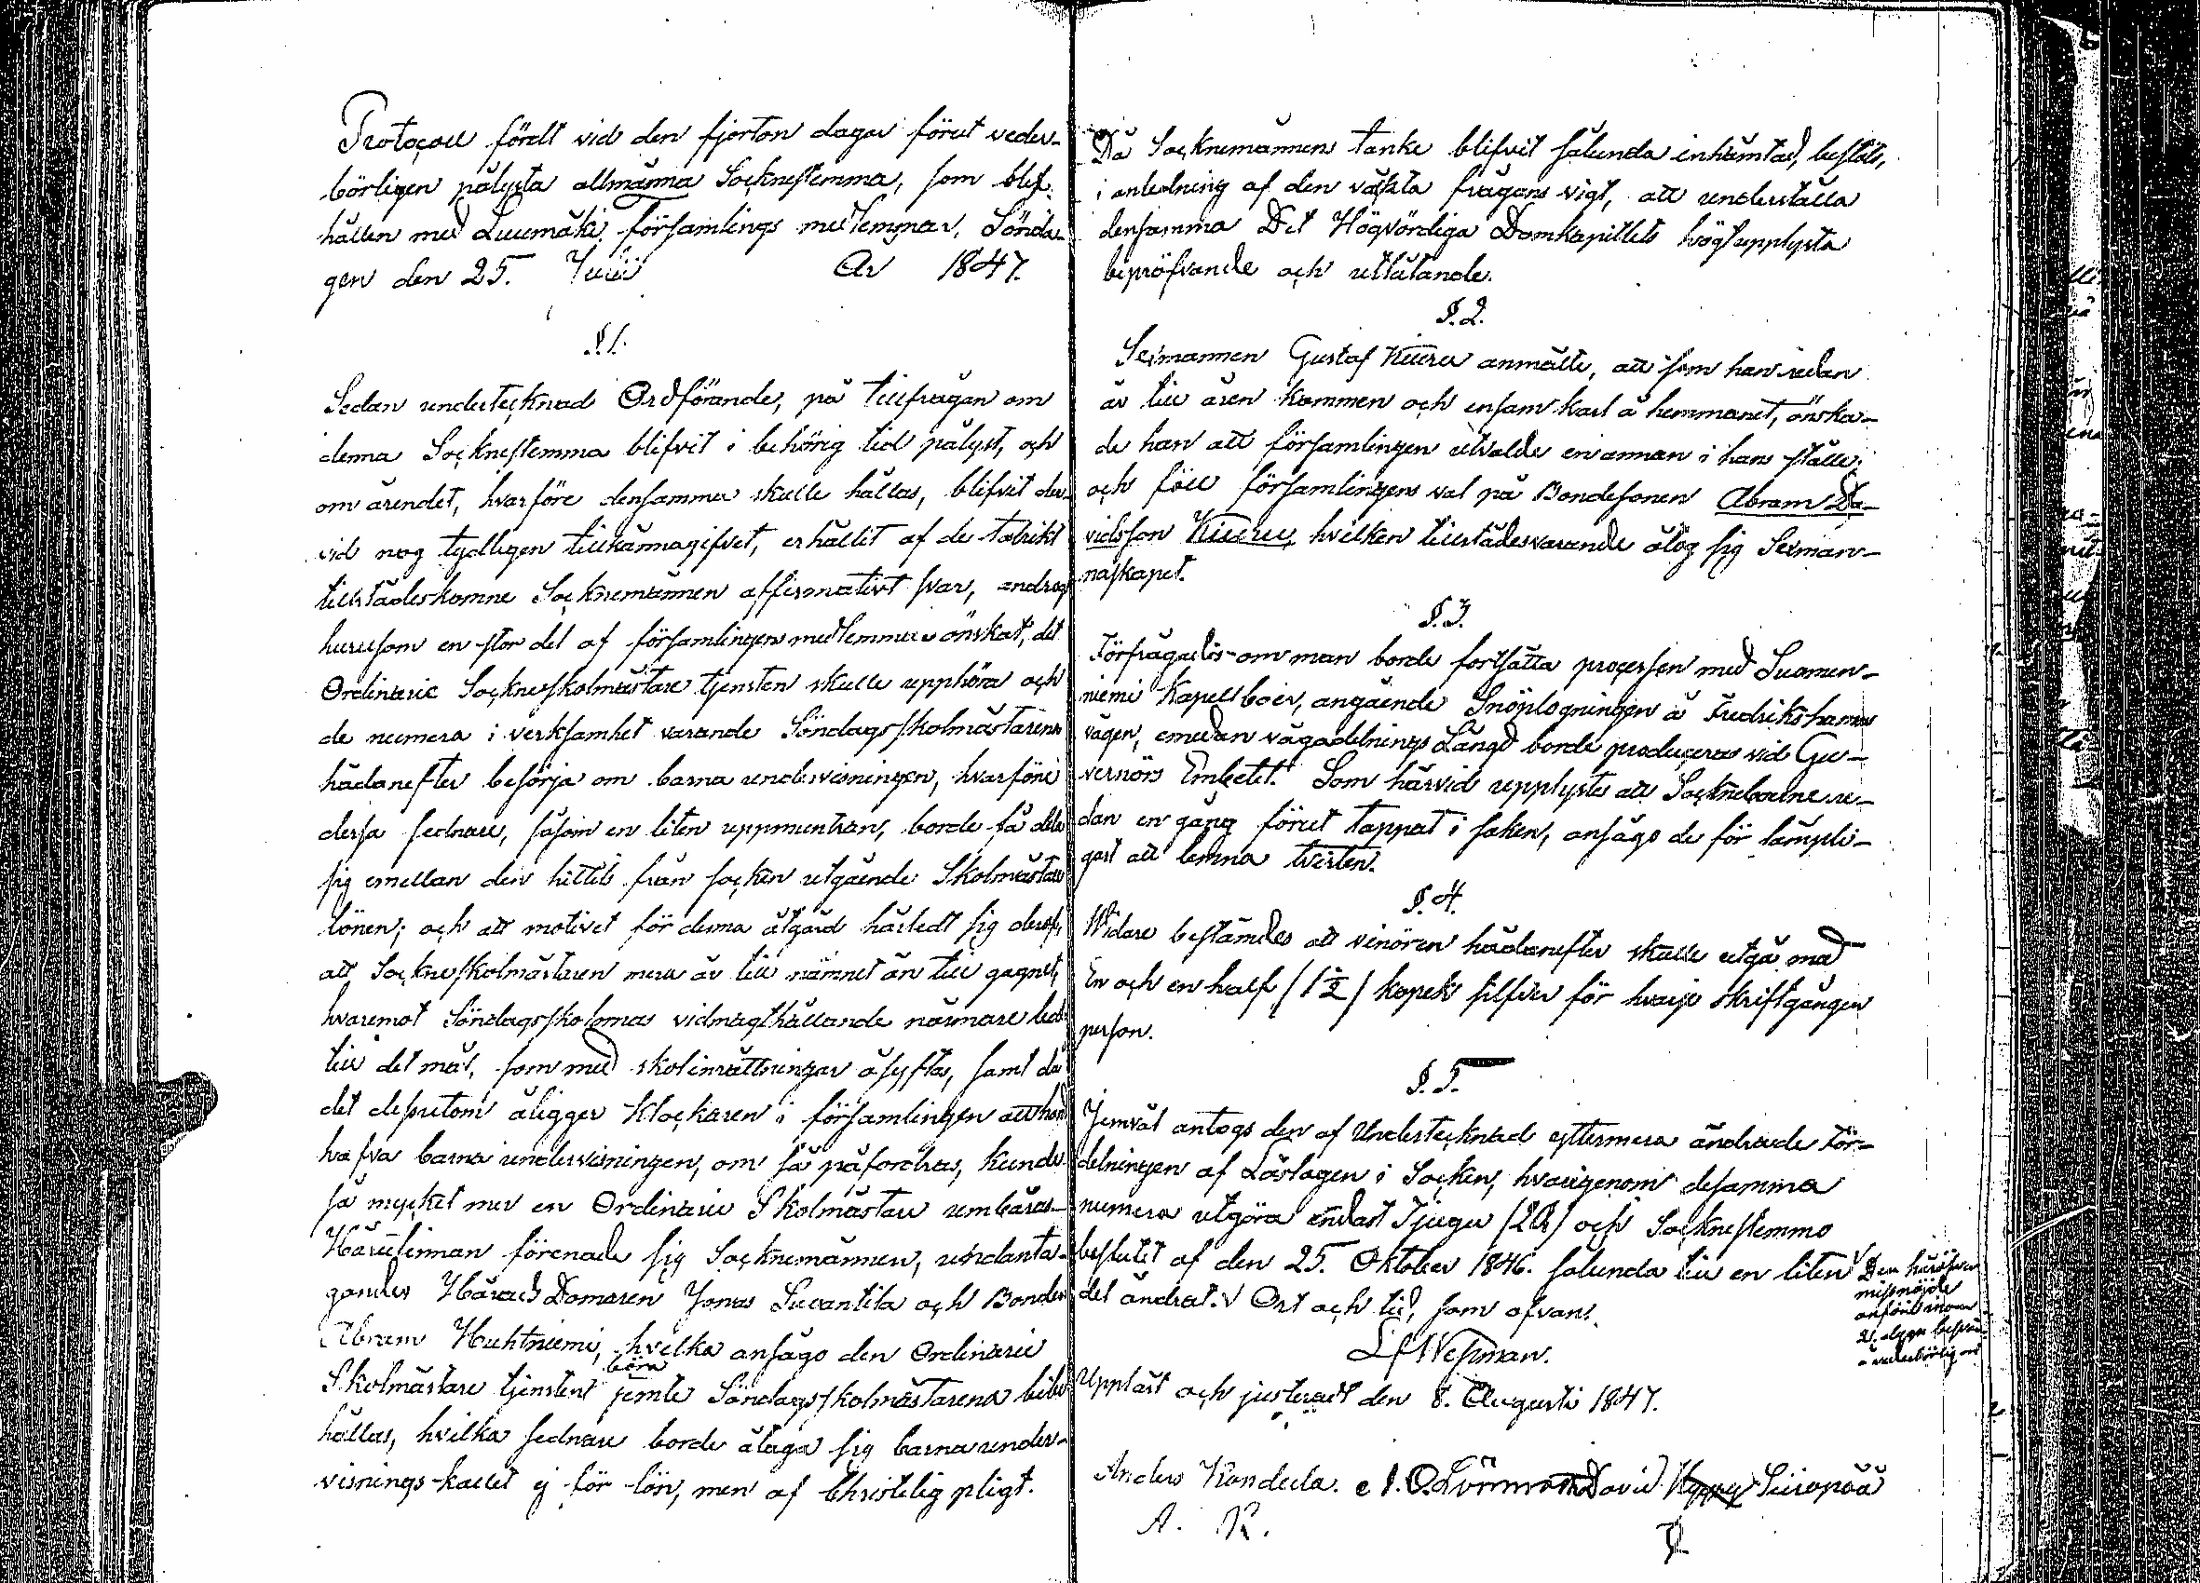 Protocoll fördt vid den fjorton dagar förut veder-
börligen pålysta allmänna Socknestemma, som blef
hållen med Luumäki församlings medlemmar, Sönda-
gen den 25. Julii År 1847.
§ 1.
Sedan undertecknad Ordförande, på tillfrågan om
denna Socknestemma blifvit i behörig tid pålyst, och
om ärendet, hvarföre densamma skulle hållas, blifvit der-
vid nog tydligen tillkännagifvet, erhållit af de talrikt
tillstädeskomne Socknemännen affirmativt svar, androg
hurusom en stor del af församlingens medlemmar önskat, det
Ordinarie Sockneskolmästare tjensten skulle upphöra och
de numera i verksamhet varande Söndagsskolmästarena
hädanefter besörja om barna undervisningen, hvarföre
dessa sednare, såsom en liten uppmuntran, borde få dela
sig emellan den hittills från socken utgående Skolmästare
lönen; och att motivet för denna åtgärd härledt sig deraf,
att Sockneskolmästaren mera är till nämnet än till gagnet,
hvaremot Söndagsskolornas vidmagthållande närmare led
till det mål, som med skolinrättningar åsyftas, samt då
det dessutom åligger Klockaren i församlingen att hand
hafva barna undervisningen, om så påfordras, kunde
så mycket mer en Ordinarie Skolmästare umbäras.
Härutinnan förenade sig Socknemännen, undanta-
gandes Härads Domaren Jonas Suvantila och Bonden
Abram Huhtniemi, hvilka ansågo den Ordinarie
Skolmästare tjensten böra jemte Söndagsskolmästarena bibe
hållas, hvilka sednare borde åtaga sig barna under-
visnings-kallet ej för lön, men af Christelig pligt.
Då Socknemännens tanke blifvit sålunda inhämtad, beslöts,
i anledning af den väckta frågans vigt, att underställa
densamma Det Högvördiga Domkapitlets högtupplysta
bepröfvande och utslåtande.
§. 2.
Sexmannen Gustaf Kiuru anmälte, att som han redan
är till åren kommen och ensam karl å hemmanet, önska-
de han att församlingen utvalde en annan i hans ställe;
och föll församlingens val på Bondesonen Abram Da-
vidsson Kiuru, hvilken tillstädesvarande åtog sig Sexman-
naskapet.
§. 3.
Förfrågades om man borde fortsätta processen med Suomen-
niemi Kapellboer, angående Snöplogningen å Fredrikshamns
vägen, emedan vägadelnings Längd borde produceras vid Gu-
vernörs Embetet. Som härvid upplystes att Sockneboerne re-
dan en gång förut tappat i saken, ansågo de för lämpli-
gast att lemna tvisten.
§. 4.
Widare bestämdes att vinören hädanefter skulle utgå med
En och en half /1½/ kopek silfver för hvarje skriftgången
person.
§. 5.
Jemväl antogs den af Undertecknad yttermera ändrade För-
delningen af Läslagen i Socken, hvarigenom desamma
numera utgöra endast Tjugu /20/ och Sockenstemmo
beslutet af den 25. Oktober 1846. sålunda till en liten
del ändrat. √ Ort och tid, som ofvan.
√ Den häröfver
missnöjde
anföre inom
Wessman.
Uppläst och justerat den 8. Augusti 1847.
Anders Kandula. David Siiropää
A. K.